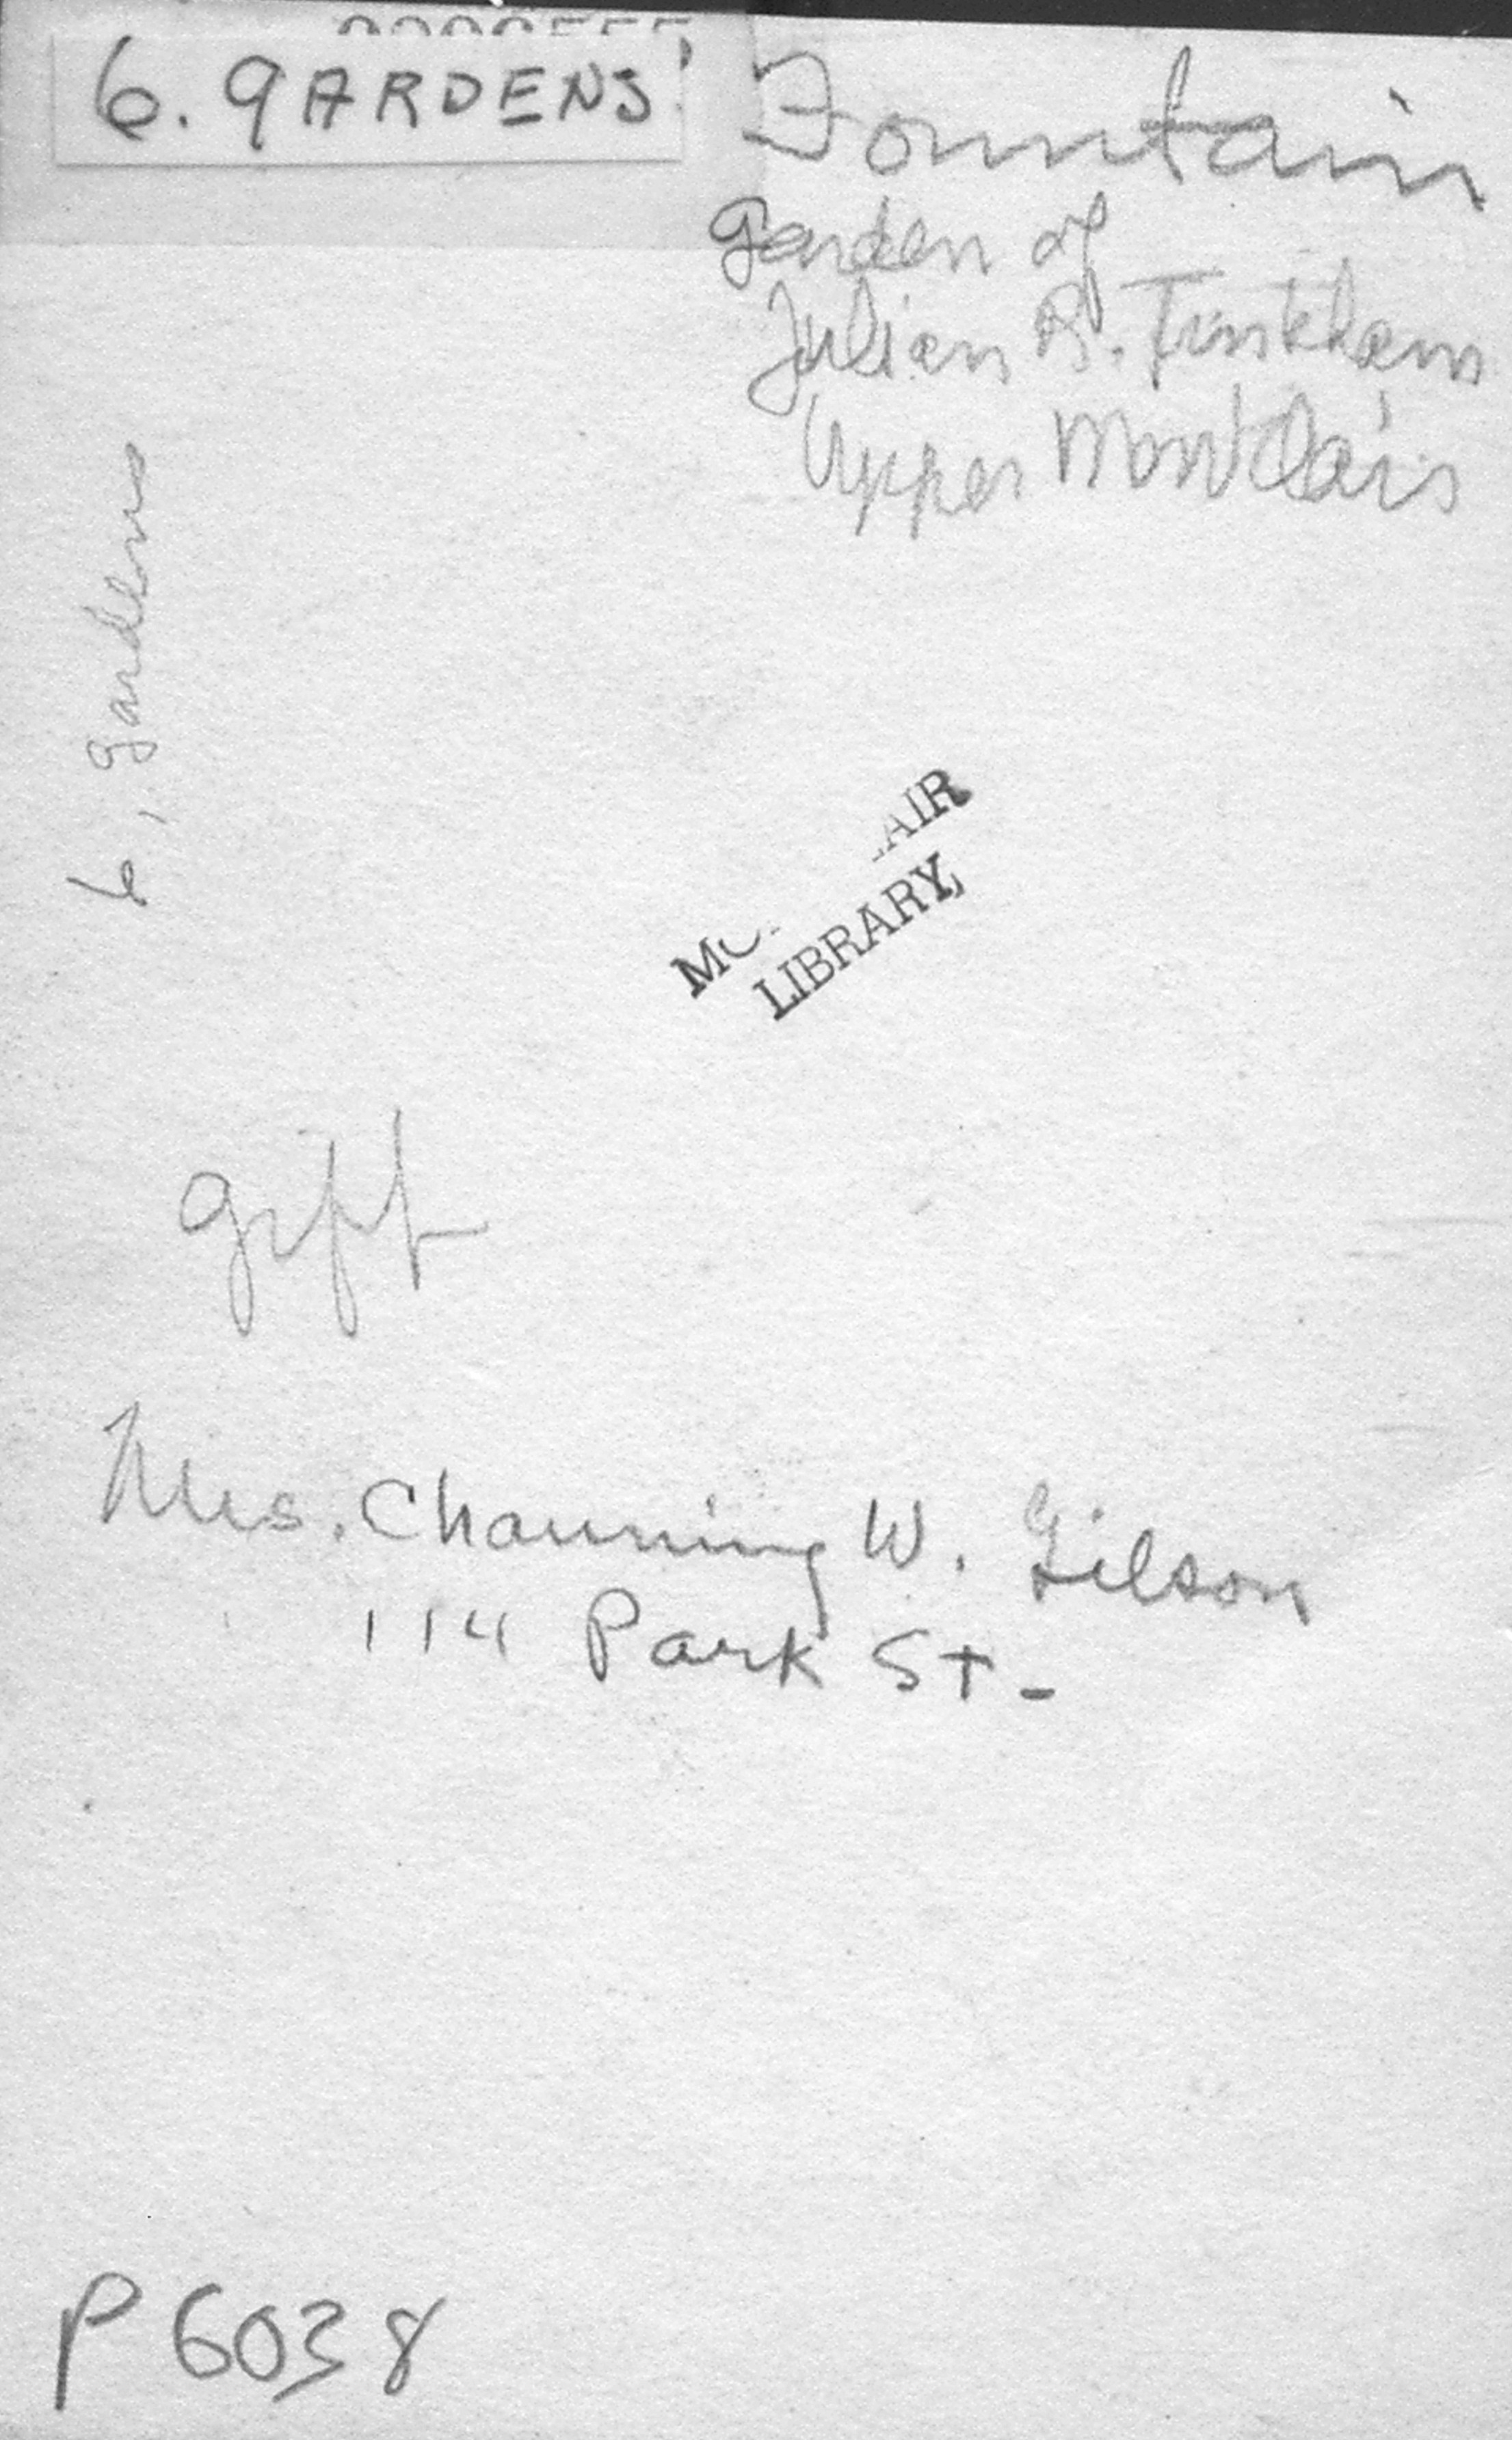 6. GARDENS
Fountain
Garden of
Julian R. Tinkham
Upper Montclair
6, gardens
AIR
LIBRARY
gift
Mrs. Channing W. Gilson
114 Park St.
P6038